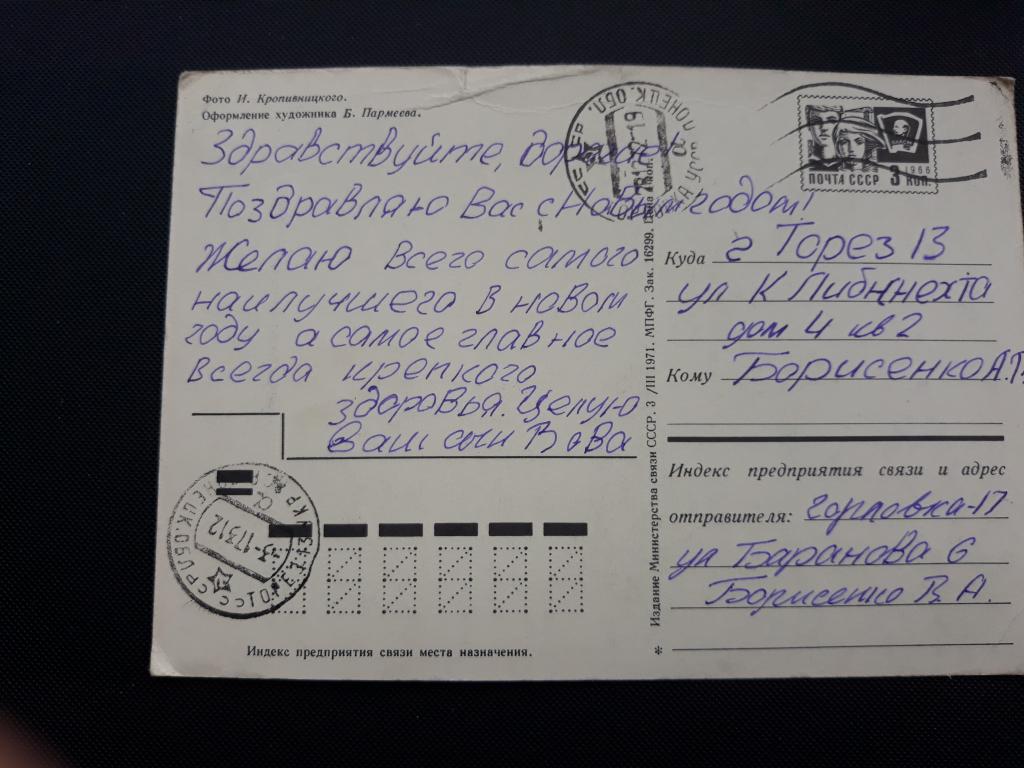 Фото И. Кропивницкого.
Оформление художника Б. Пармеева.
Здравствуйте,
Поздравляю Вас с Новым годом!
Желаю всего самого
наилучшего в новом
году а самое главное
всегда крепкого
здоровья. Целую
Ваш сын Вова
Индекс предприятия связи места назначения.
Издание Министерства связи СССР. 3/III 1971. МПФГ. Зак. 16299. Цена 4 коп.
ПОЧТА СССР 3 КОП.
1966
Куда г Торез 13
ул К Либкнехта
дом 4 кв 2
Кому Борисенко А.
Индекс предприятия связи и адрес
отправителя: Горловка-17
ул Баранова 6
Борисенко В. А.
ДОНЕЦК. ОБЛ.